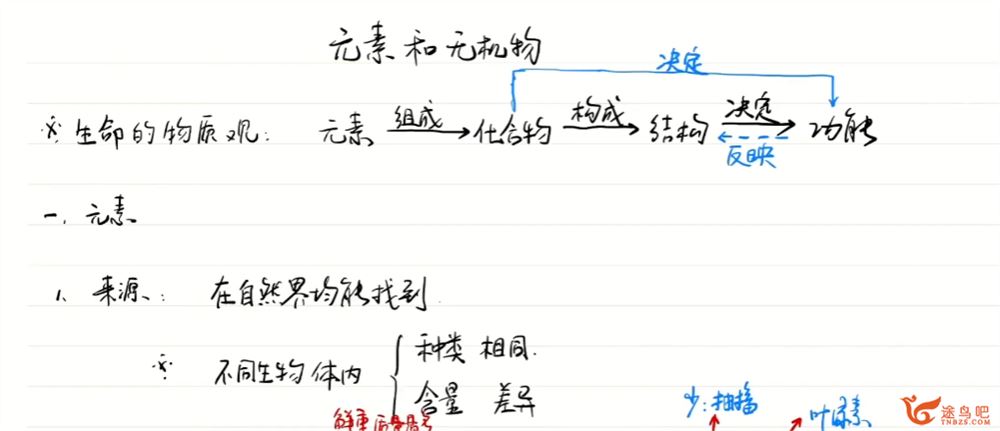 元素和无机物
决定
※生命的物质观: 元素 组成 化合物 构成 结构 决定 功能
反映
一. 元素
1. 来源: 在自然界均能找到.
※ 不同生物体内 { 种类 相同.
含量 差异
鲜重
少:抽搐
叶绿素
途鸟吧
TNBZS.COM